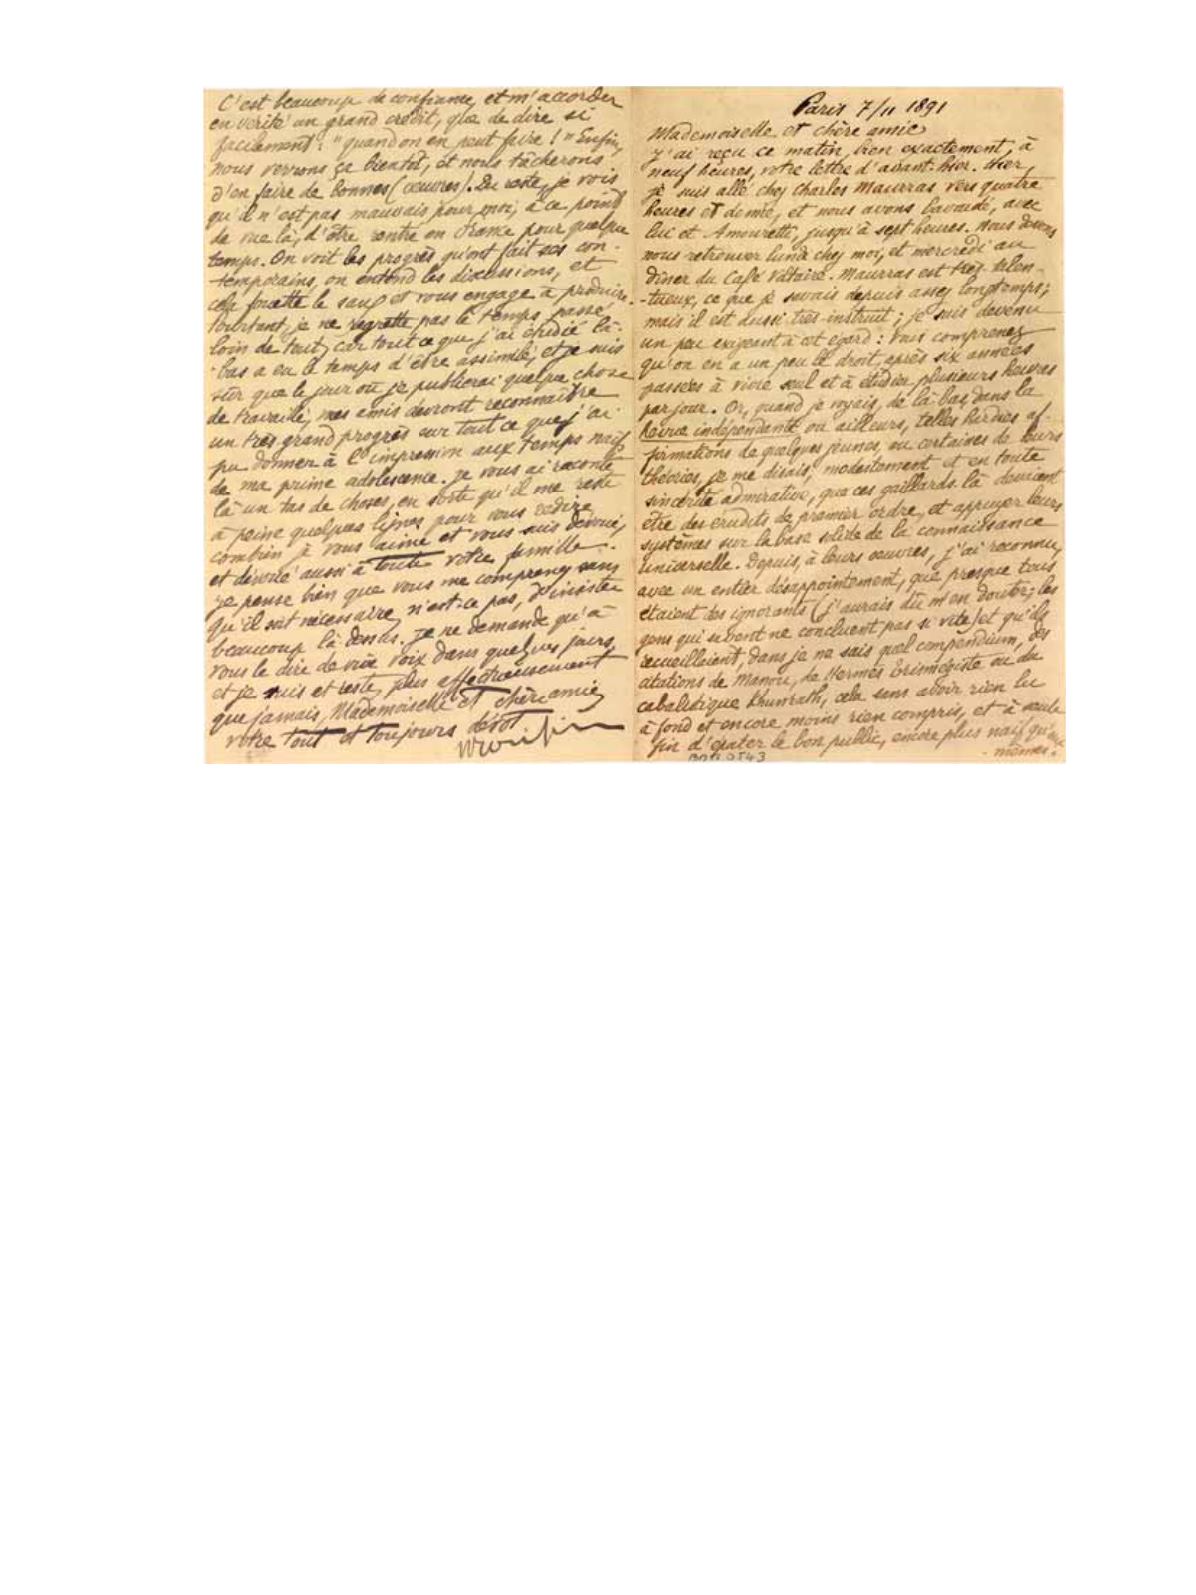 Paris 7/11 1891
Mademoiselle et chère amie
J'ai reçu ce matin, bien exactement, à
neuf heures, votre lettre d'avant-hier. Hier,
je suis allé chez Charles Maurras vers quatre
heures et demie, et nous avons bavardé, avec
lui et Amouretti, jusqu'à sept heures. Nous devons
nous retrouver lundi chez moi, et mercredi au
dîner du Café Voltaire. Maurras est très talen-
-tueux, ce que je savais depuis assez longtemps;
mais il est aussi très instruit; je suis devenu
un peu exigeant à cet égard: vous comprenez
qu'on en a un peu le droit, après six années
passées à vivre seul et à étudier plusieurs heures
par jour. Or, quand je voyais, de là-bas, dans la
Revue indépendante ou ailleurs, telles hardies af-
firmations de quelques jeunes, ou certaines de leurs
théories, je me disais, modestement et en toute
sincérité admirative, que ces gaillards-là devaient
être des érudits de premier ordre, et appuyer leurs
systèmes sur la base solide de la connaissance
universelle. Depuis, à leurs oeuvres, j'ai reconnu,
avec un entier désappointement, que presque tous
étaient des ignorants (j'aurais dû m'en douter; les
gens qui savent ne concluent pas si vite) et qu'ils
recueillaient, dans je ne sais quel compendium, des
citations de Manou, de Hermès Trismégiste ou du
cabalistique Khunrath, cela sans avoir rien lu
à fond et encore moins rien compris, et à seule
fin d'épater le bon public, encore plus naïf qu'eux
-mêmes.
C'est beaucoup de confiance, et m'accorder
en vérité un grand crédit, que de dire si
facilement: "quand on en peut faire!" Enfin,
nous verrons ça bientôt, et nous tâcherons
d'en faire de bonnes (oeuvres). Du reste, je vois
qu'il n'est pas mauvais pour moi, à ce point
de vue là, d'être rentré en France pour quelque
temps. On voit les progrès qu'ont fait ses con-
temporains, on entend les discussions, et
cela fouette le sang et vous engage à produire.
Pourtant, je ne regrette pas le temps passé
loin de tout, car tout ce que j'ai étudié là-
-bas a eu le temps d'être assimilé, et je suis
sûr que le jour où je publierai quelque chose
de travaillé, mes amis devront reconnaître
un très grand progrès sur tout ce que j'ai
pu donner à l'impression aux temps naïfs
de ma prime adolescence. Je vous ai raconté
là un tas de choses, en sorte qu'il me reste
à peine quelques lignes pour vous redire
combien je vous aime et vous suis dévoué,
et dévoué aussi à toute votre famille.
Je pense bien que vous me comprenez sans
qu'il soit nécessaire, n'est-ce pas, d'insister
beaucoup là dessus. Je ne demande qu'à
vous le dire de vive voix dans quelques jours,
et je suis et reste, plus affectueusement
que jamais, Mademoiselle et chère amie,
votre tout et toujours dévot